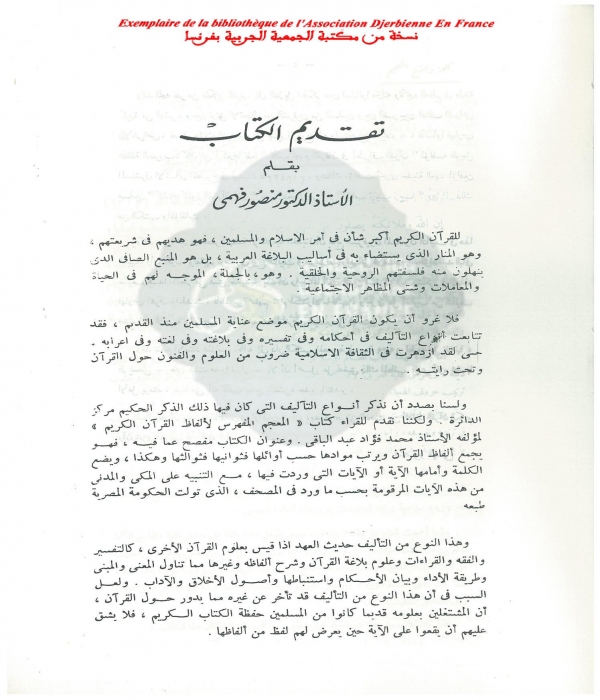 Exemplaire de la bibliothèque de l'Association Djerbienne En France
نسخة من مكتبة الجمعية الجربية بفرنسا
تقديم الكتاب
بقلم
الأستاذ الدكتور منصور فهمى
للقرآن الكريم أكبر شأن فى أمر الاسلام والمسلمين ، فهو هديهم فى شريعتهم ،
وهو المنار الذى يستضاء به فى أساليب البلاغة العربية ، بل هو المنبع الصافى الذى
ينهلون منه فلسفتهم الروحية والخلقية . وهو ، بالجملة ، الموجه لهم فى الحياة
والمعاملات وشتى المظاهر الاجتماعية .
فلا غرو أن يكون القرآن الكريم موضع عناية المسلمين منذ القديم ، فقد
تتابعت أنواع التآليف فى أحكامه وفى تفسيره وفى بلاغته وفى لغته وفى اعرابه .
حتى لقد ازدهرت فى الثقافة الاسلامية ضروب من العلوم والفنون حول القرآن
وتحت رايته .
ولسنا بصدد أن نذكر أنواع التآليف التى كان فيها ذلك الذكر الحكيم مركز
الدائرة . ولكننا نقدم للقراء كتاب « المعجم المفهرس لألفاظ القرآن الكريم »
لمؤلفه الأستاذ محمد فؤاد عبد الباقى . وعنوان الكتاب مفصح عما فيه ، فهو
يجمع ألفاظ القرآن ويرتب موادها حسب أوائلها فثوانيها فثوالثها وهكذا ، ويضع
الكلمة وأمامها الآية أو الآيات التى وردت فيها ، مع التنبيه على المكى والمدنى
من هذه الآيات المرقومة بحسب ما ورد فى المصحف ، الذى تولت الحكومة المصرية
طبعه
وهذا النوع من التآليف حديث العهد اذا قيس بعلوم القرآن الأخرى ، كالتفسير
والفقه والقراءات وعلوم بلاغة القرآن وشرح ألفاظه وغيرها مما تناول المعنى والمبنى
وطريقة الأداء وبيان الأحكام واستنباطها وأصول الأخلاق والآداب . ولعل
السبب فى أن هذا النوع من التآليف قد تأخر عن غيره مما يدور حول القرآن ،
أن المشتغلين بعلومه قديما كانوا من المسلمين حفظة الكتاب الكريم ، فلا يشق
عليهم أن يقعوا على الآية حين يعرض لهم لفظ من ألفاظها .